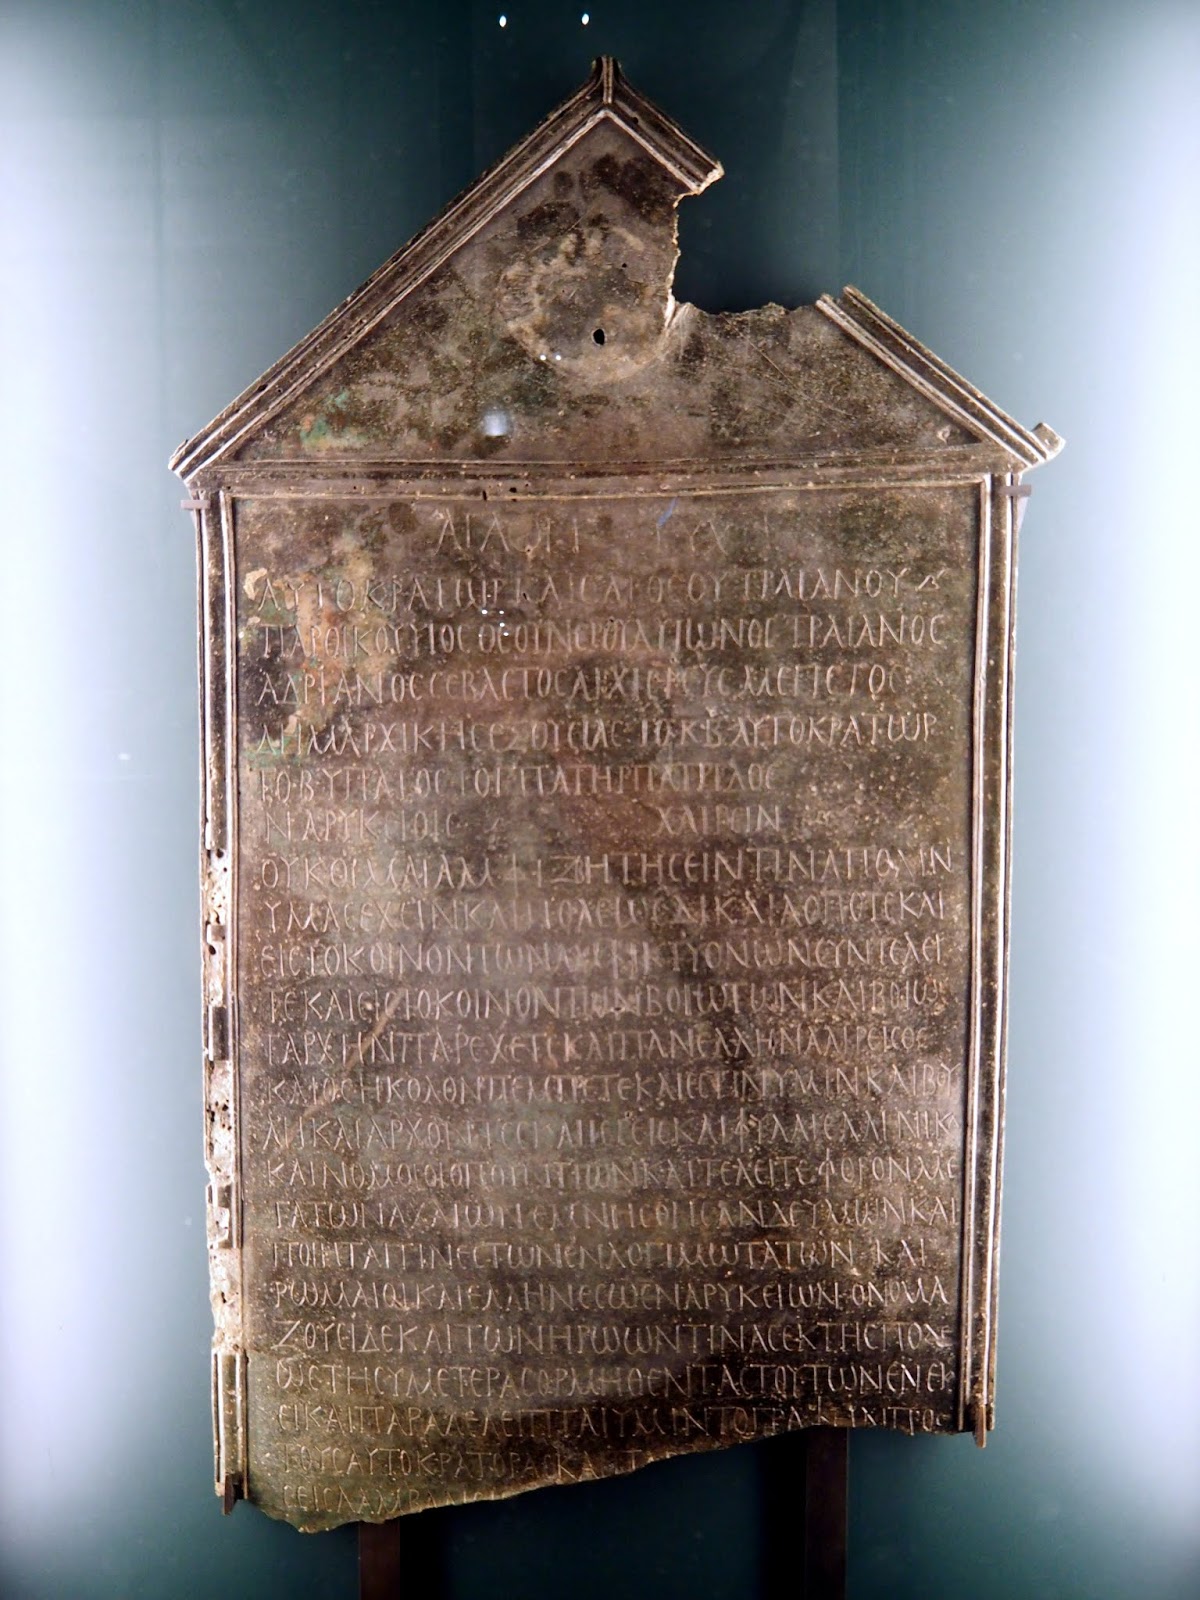 ΑΓΑΘΗΙ ΤΥΧΗΙ
ΑΥΤΟΚΡΑΤΩΡ ΚΑΙΣΑΡ ΘΕΟΥ ΤΡΑΙΑΝΟΥ
ΠΑΡΘΙΚΟΥ ΥΙΟΣ ΘΕΟΥ ΝΕΡΟΥΑ ΥΙΩΝΟΣ ΤΡΑΙΑΝΟΣ
ΑΔΡΙΑΝΟΣ ΣΕΒΑΣΤΟΣ ΑΡΧΙΕΡΕΥΣ ΜΕΓΙΣΤΟΣ
ΔΗΜΑΡΧΙΚΗΣ ΕΞΟΥΣΙΑΣ ΤΟ ΚΒ ΑΥΤΟΚΡΑΤΩΡ
ΤΟ Β ΥΠΑΤΟΣ ΤΟ Γ ΠΑΤΗΡ ΠΑΤΡΙΔΟΣ
ΝΑΡΥΚΕΙΟΙΣ ΧΑΙΡΕΙΝ
ΟΥΚ ΟΙΜΑΙ ΑΜΦΙΖΗΤΗΣΕΙΝ ΤΙΝΑ ΠΟΛΙΝ
ΥΜΑΣ ΕΧΕΙΝ ΚΑΙ ΠΟΛΕΩΣ ΔΙΚΑΙΑ ΟΠΟΤΕ ΚΑΙ
ΕΙΣ ΤΟ ΚΟΙΝΟΝ ΤΩΝ ΑΜΦΙΚΤΥΟΝΩΝ ΣΥΝΤΕΛΕΙ
ΤΕ ΚΑΙ ΕΙΣ ΤΟ ΚΟΙΝΟΝ ΤΩΝ ΒΟΙΩΤΩΝ ΚΑΙ ΒΟΙΩ
ΤΑΡΧΗΝ ΠΑΡΕΧΕΤΕ ΚΑΙ ΠΑΝΕΛΛΗΝΑ ΑΙΡΕΙΣΘΕ
ΚΑΙ ΘΕΗΚΟΛΟΝ ΠΕΜΠΕΤΕ ΚΑΙ ΕΣΤΙΝ ΥΜΙΝ ΚΑΙ ΒΟΥ
ΛΗ ΚΑΙ ΑΡΧΟΝΤΕΣ ΚΑΙ ΙΕΡΕΙΣ ΚΑΙ ΦΥΛΑΙ ΕΛΛΗΝΙΚ
ΚΑΙ ΝΟΜΟΙ ΟΙ ΟΠΟΥΝΤΙΩΝ ΚΑΙ ΤΕΛΕΙΤΕ ΦΟΡΟΝ ΜΕ
ΤΑ ΤΩΝ ΑΧΑΙΩΝ ΕΜΝΗΣΘΗΣΑΝ ΔΕ ΥΜΩΝ ΚΑΙ
ΠΟΙΗΤΑΙ ΤΙΝΕΣ ΤΩΝ ΕΛΛΟΓΙΜΩΤΑΤΩΝ ΚΑΙ
ΡΩΜΑΙΟΙ ΚΑΙ ΕΛΛΗΝΕΣ ΩΣ ΝΑΡΥΚΕΙΩΝ ΟΝΟΜΑ
ΖΟΥΣΙ ΔΕ ΚΑΙ ΤΩΝ ΗΡΩΩΝ ΤΙΝΑΣ ΕΚ ΤΗΣ ΠΟΛΕ
ΩΣ ΤΗΣ ΥΜΕΤΕΡΑΣ ΟΡΜΗΘΕΝΤΑΣ ΤΟΥΤΩΝ ΕΝΕΚ
ΕΙ ΚΑΙ ΠΑΡΑΛΕΛΕΙΠΤΑΙ ΥΜΙΝ ΤΟ ΓΡΑΦΕΙΝ ΠΡΟΣ
ΤΟΥΣ ΑΥΤΟΚΡΑΤΟΡΑΣ ΚΑΙ
ΣΕΙΣ ΛΑΜΒΑΝ